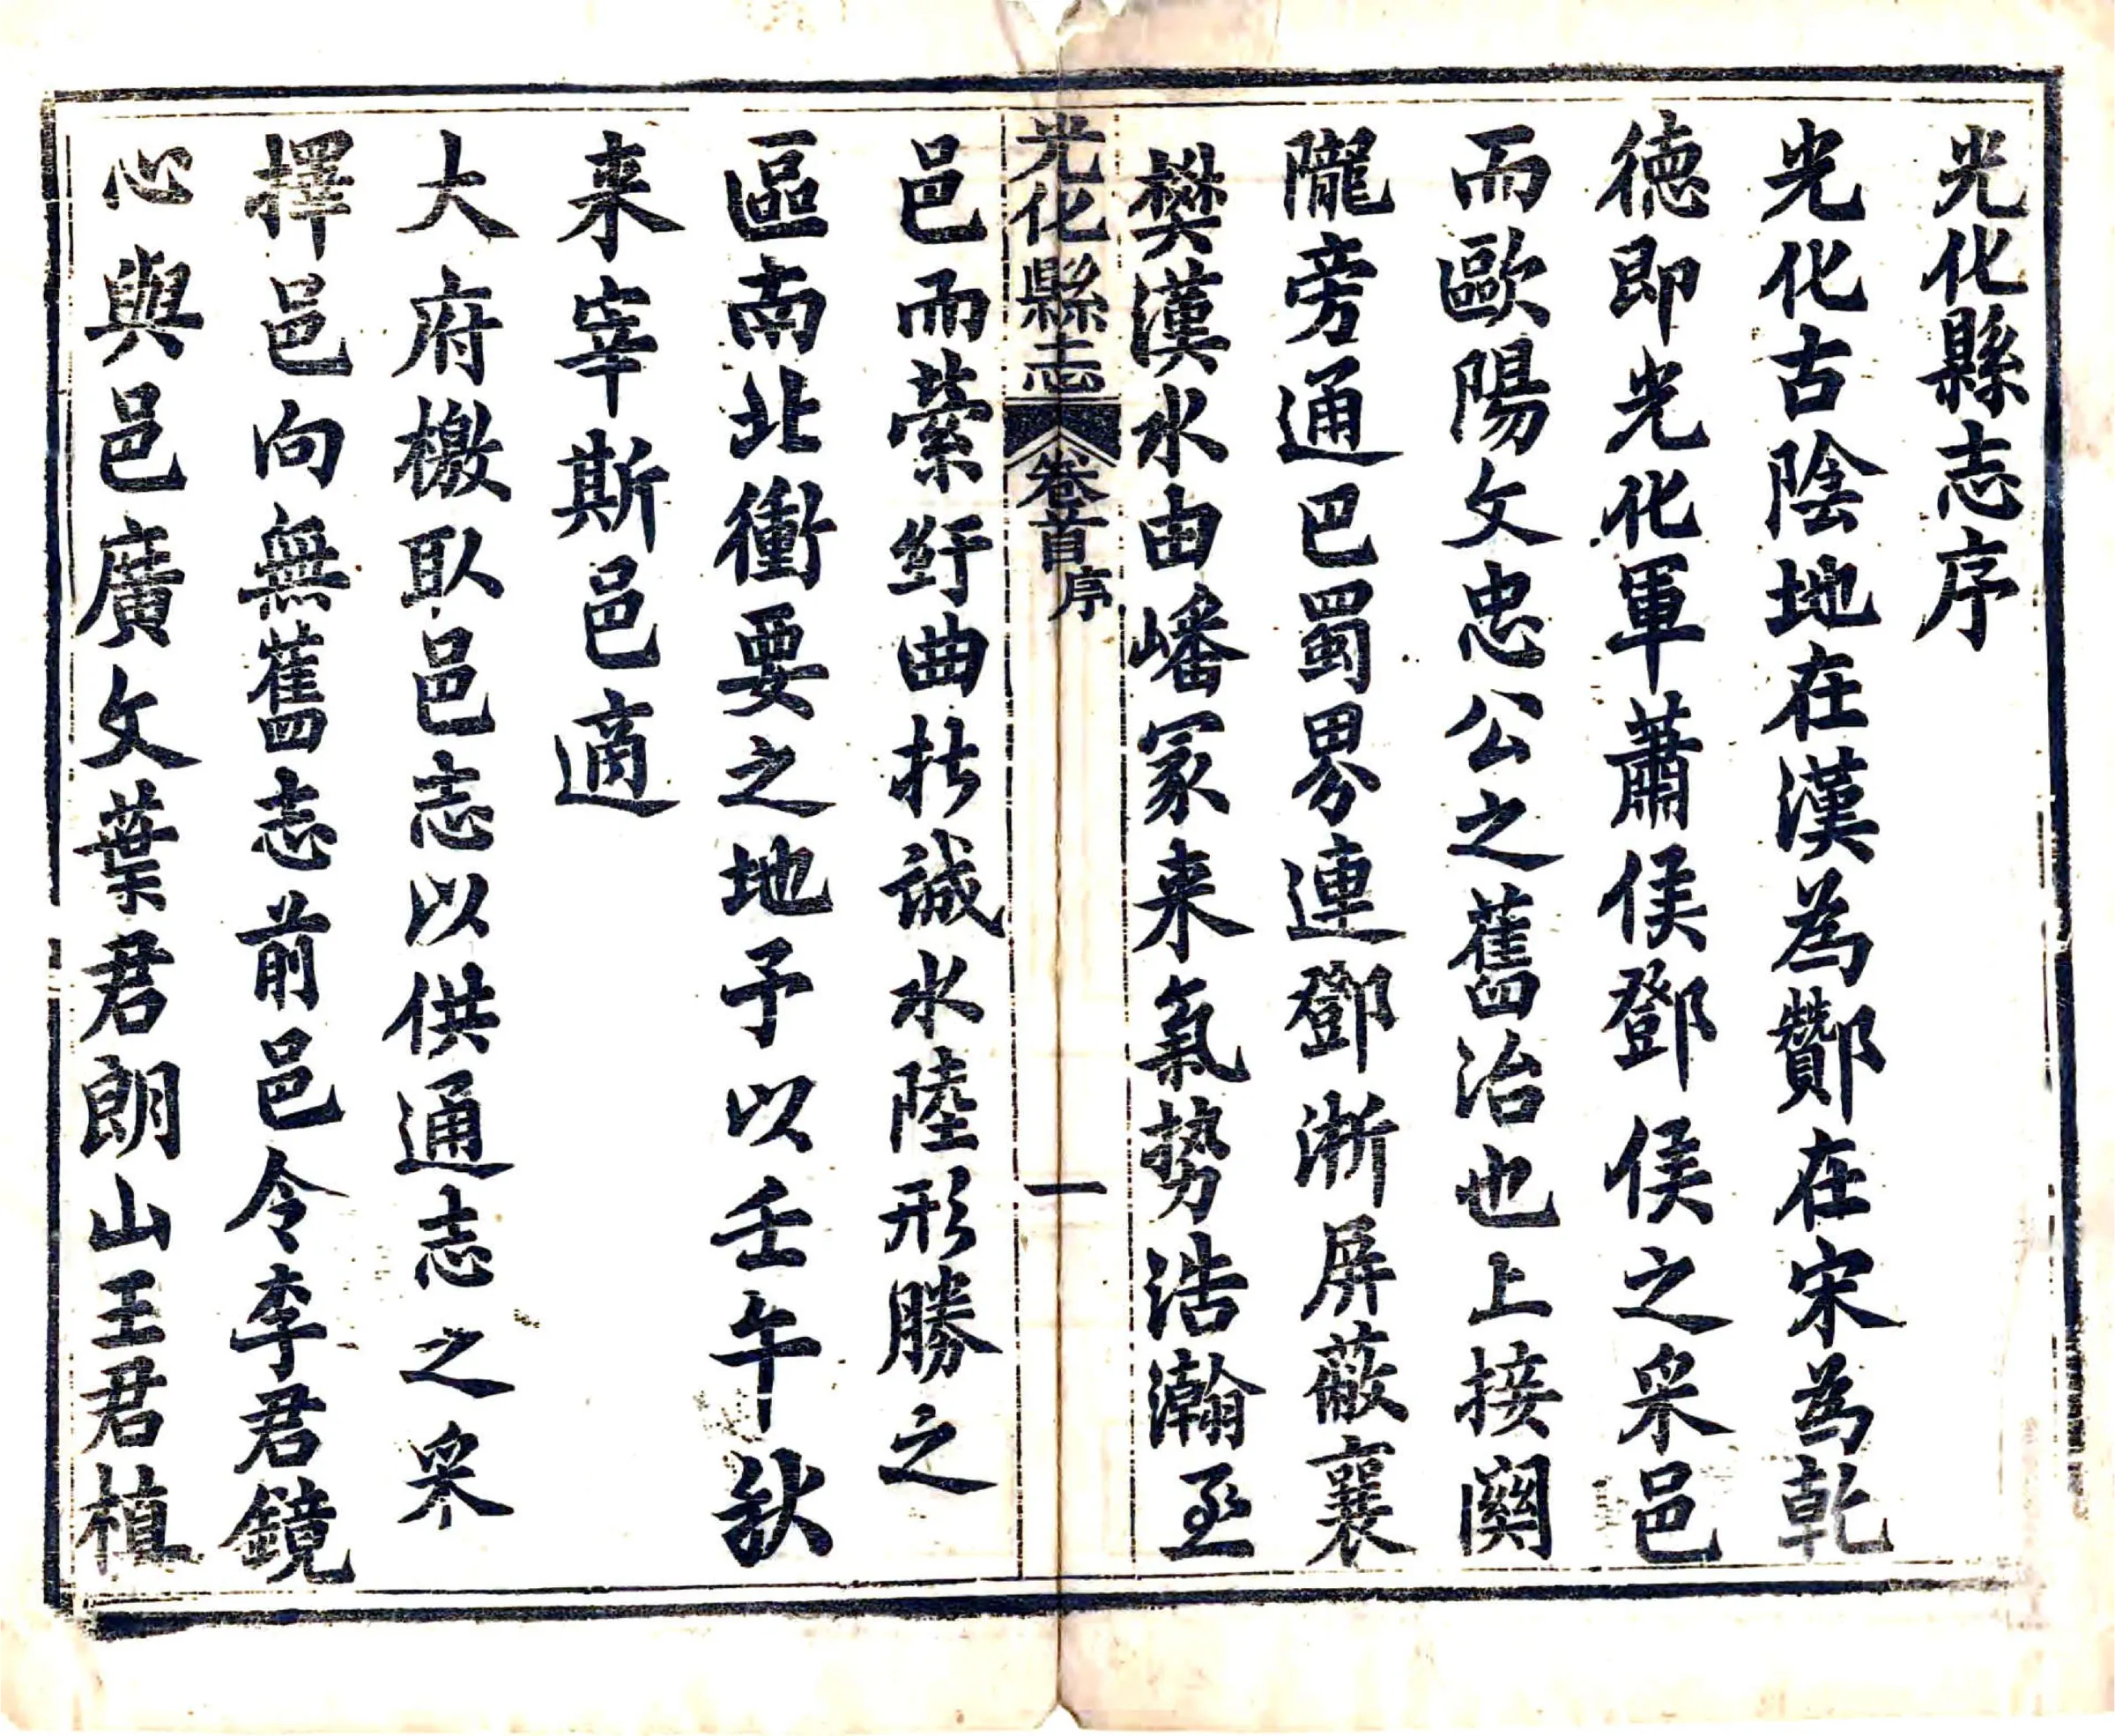 光化縣志序
光化古陰地在漢為酇在宋為乾
德即光化軍蕭侯鄧侯之采邑
而歐陽文忠公之舊治也上接関
隴旁通巴蜀界連鄧淅屏蔽襄
樊漢水由嶓冡来氣势浩瀚至
光化縣志
卷首
序
一
邑而縈紆曲折誠水陸形勝之
區南北衝要之地予以壬午秋
来宰斯邑適
大府檄取邑志以供通志之采
擇邑向無舊志前邑令李君鏡
心與邑廣文葉君朗山王君植